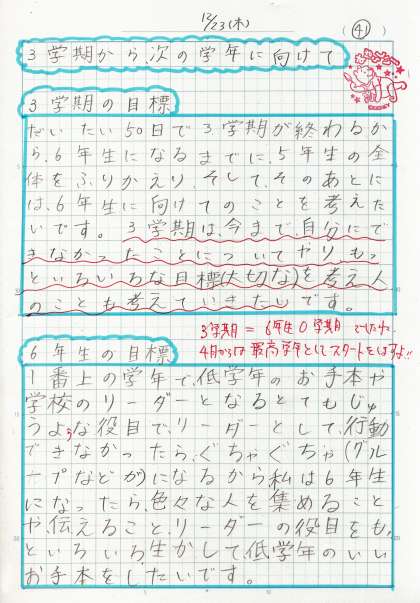 12/23(木)
(41)
3学期から、次の学年に向けて
3学期の目標
だいたい50日で3学期が終わるか
ら、6年生になるまでに、5年生の全
体をふりかえり、そして、そのあとに
は、6年生に向けてのことを考えた
いです。3学期は、今まで、自分にで
きなかったことについてやりもっ
といろいろな目標(大切な)を考え人
のことも考えていきたいです。
3学期 = 6年生0学期 でしたね
4月からは最高学年としてスタートをはずよ!!
6年生の目標
1番上の学年で、低学年のお手本や
学校のリーダーとなるとてもじゅ
うような役目で、リーダーとして、行動
できなかったら、ぐちゃぐちゃ(グル
ープなどが)になるから、私は6年生
になったら、色々な人を集めること
や伝えること、リーダーの役目をも、
といろいろ生かして、低学年のいい
お手本をしたいです。